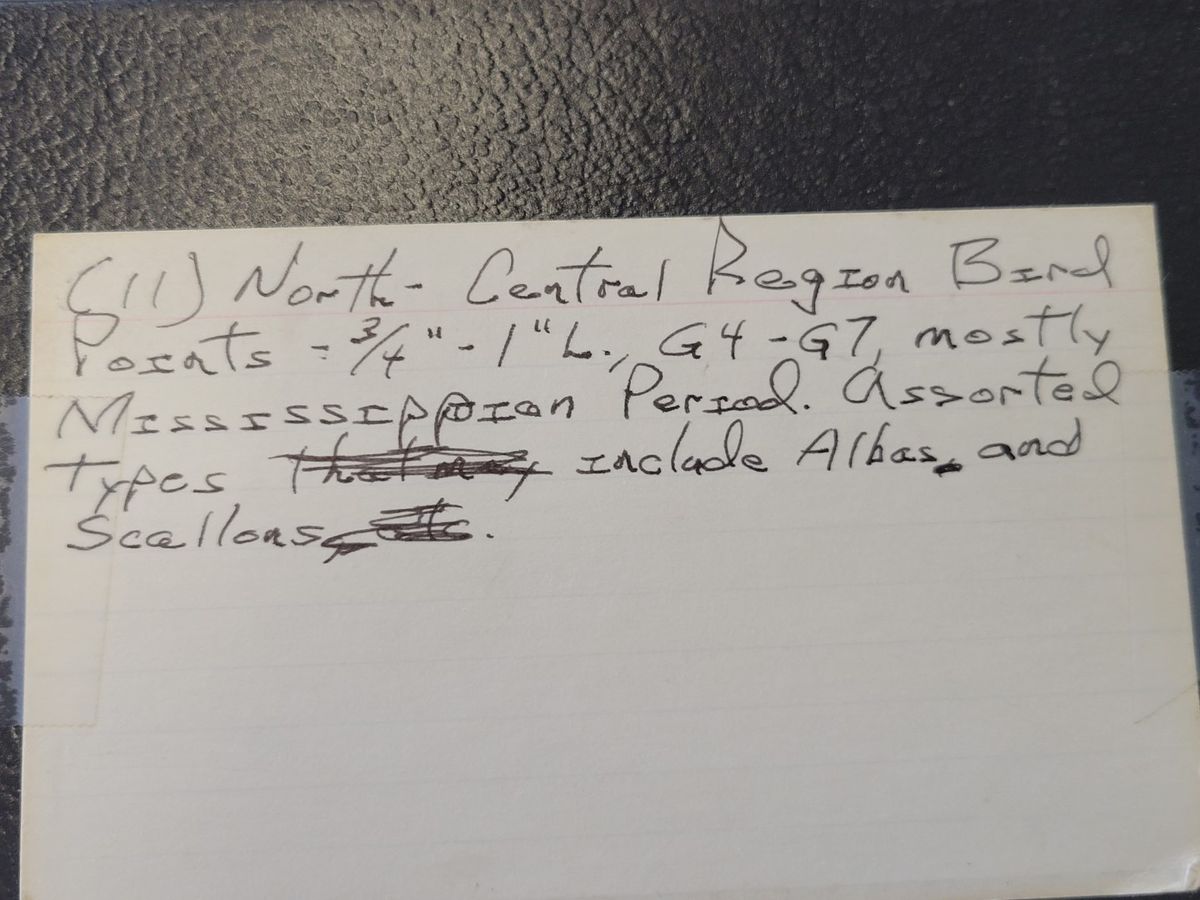 (11) North-Central Region Bird
Points - 3/4" - 1" L., G4 - G7, mostly
Mississippian Period. Assorted
Types that may include Albas, and
Scallons, etc.